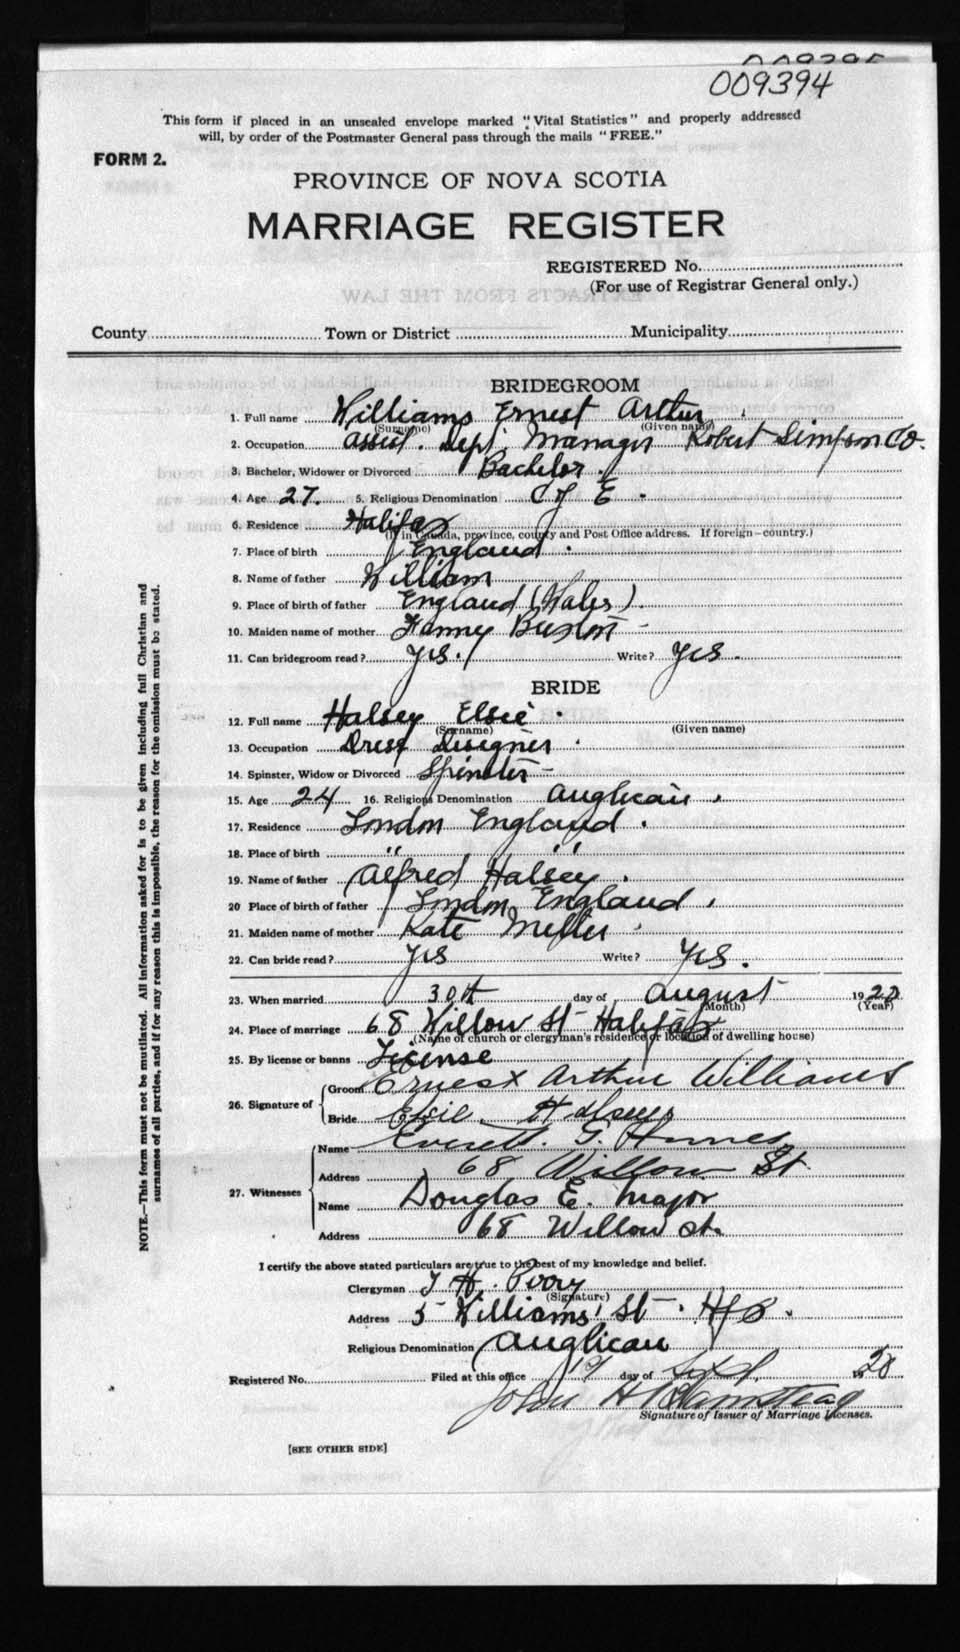 009394
This form if placed in an unsealed envelope marked "Vital Statistics" and properly addressed
will, by order of the Postmaster General pass through the mails "FREE."
FORM 2.
PROVINCE OF NOVA SCOTIA
MARRIAGE REGISTER
REGISTERED No.
(For use of Registrar General only.)
County Town or District Municipality
BRIDEGROOM
1. Full name Williams Ernest Arthur
(Surname) (Given name)
2. Occupation Assist. Dept. Manager Robert Simpson Co.
3. Bachelor, Widower or Divorced Bachelor.
4. Age 27. 5. Religious Denomination C of E.
6. Residence Halifax
(If in Canada, province, county and Post Office address. If foreign—country.)
7. Place of birth England.
8. Name of father William
9. Place of birth of father England (Wales).
10. Maiden name of mother Fanny
11. Can bridegroom read? Yes. Write? Yes.
BRIDE
12. Full name Halsey Elsie
(Surname) (Given name)
13. Occupation Dress Designer.
14. Spinster, Widow or Divorced Spinster
15. Age 24 16. Religious Denomination Anglican.
17. Residence London England.
18. Place of birth " "
19. Name of father Alfred Halsey.
20 Place of birth of father London England.
21. Maiden name of mother Kate
22. Can bride read? Yes Write? Yes.
23. When married 30th day of August 1920
(Month) (Year)
24. Place of marriage 68 Willow St Halifax
(Name of church or clergyman's residence or location of dwelling house)
25. By license or banns License
26. Signature of Groom Ernest Arthur Williams
Bride Elsie Halsey
27. Witnesses Name Everett. G.
Address 68 Willow St.
Name Douglas E. Major
Address 68 Willow St.
I certify the above stated particulars are true to the best of my knowledge and belief.
Clergyman T H. Perry
(Signature)
Address 5 Williams St. Hfx.
Religious Denomination Anglican
Registered No. Filed at this office 19 day of Sept. 20
John H
Signature of Issuer of Marriage Licenses.
[SEE OTHER SIDE]
NOTE.—This form must not be mutilated. All information asked for is to be given including full Christian and
surnames of all parties, and if for any reason this is impossible, the reason for the omission must be stated.